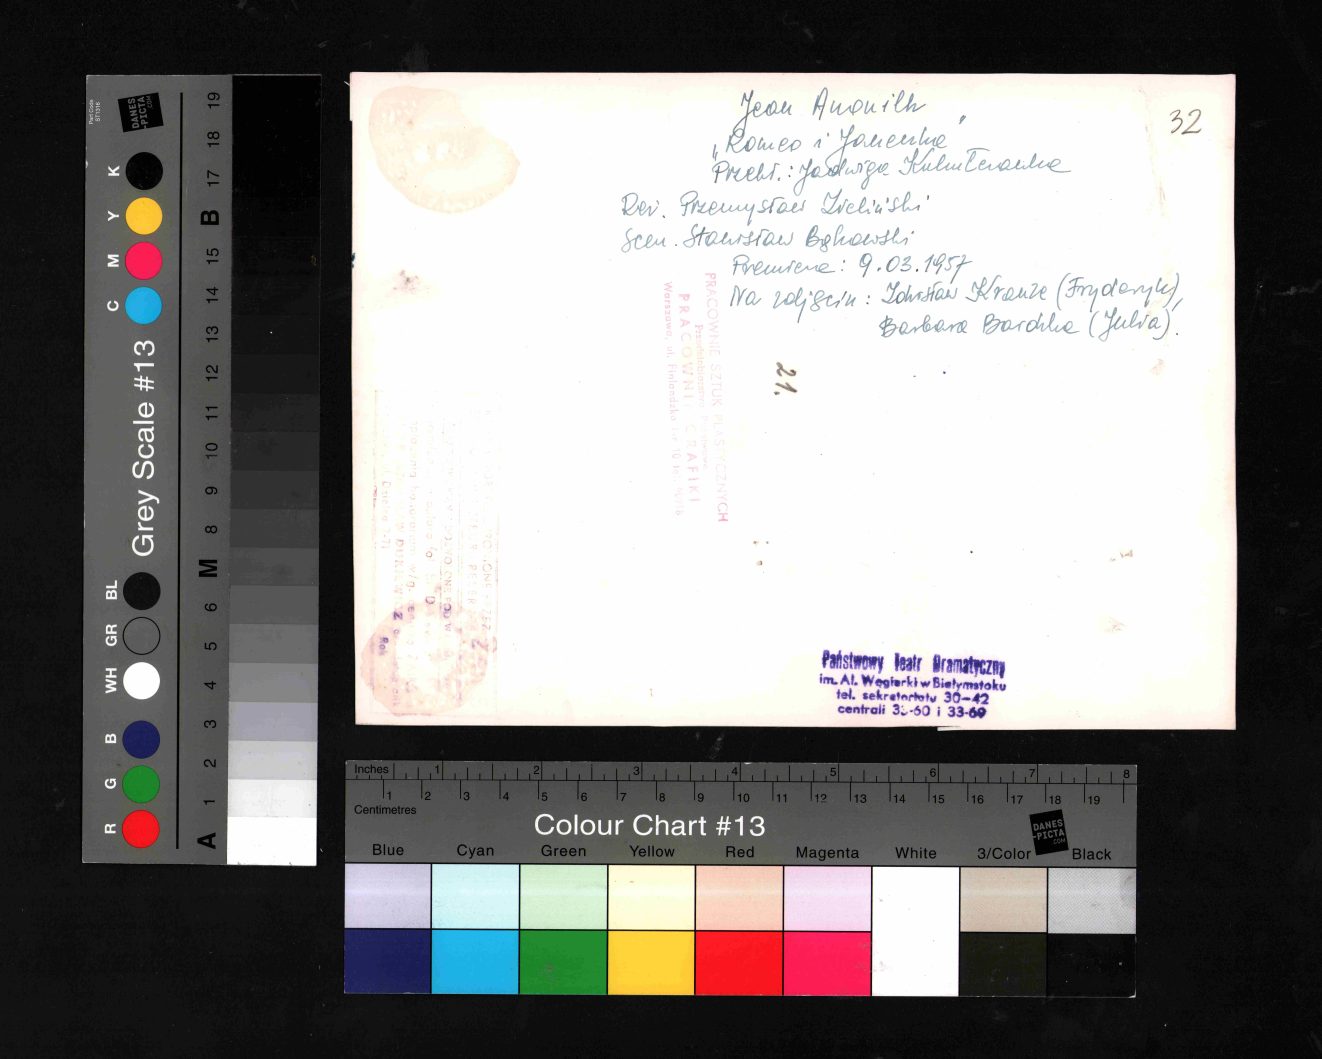 Jean Anouilh
32
„Romeo i Joneczka”
Przekł.: Jadwiga
Reż. Przemysław Zieliński
Scen. Stanisław Bąkowski
Premiera: 9.03.1957
Na zdjęciu: Zdzisław Krauze (Fryderyk),
Barbara Bardzka (Julia).
21.
PRACOWNIE SZTUK PLASTYCZNYCH
Przedsiębiorstwo Państwowe
PRACOWNIA GRAFIKI
Warszawa, ul. Finlandzka 10
Państwowy Teatr Dramatyczny
im. Al. Węgierki w Białymstoku
tel. sekretariatu 30-42
centrali 33-60 i 33-69
Part Code
ST1316
DANES
-PICTA
.COM
Grey Scale #13
K
Y
M
C
BL
GR
WH
B
G
R
19
18
17
B
15
14
13
12
11
10
9
8
M
6
5
4
3
2
1
A
Inches 1 2 3 4 5 6 7 8
1 2 3 4 5 6 7 8 9 10 11 12 13 14 15 16 17 18 19
Centimetres
Colour Chart #13
DANES
-PICTA
.COM
Blue Cyan Green Yellow Red Magenta White 3/Color Black